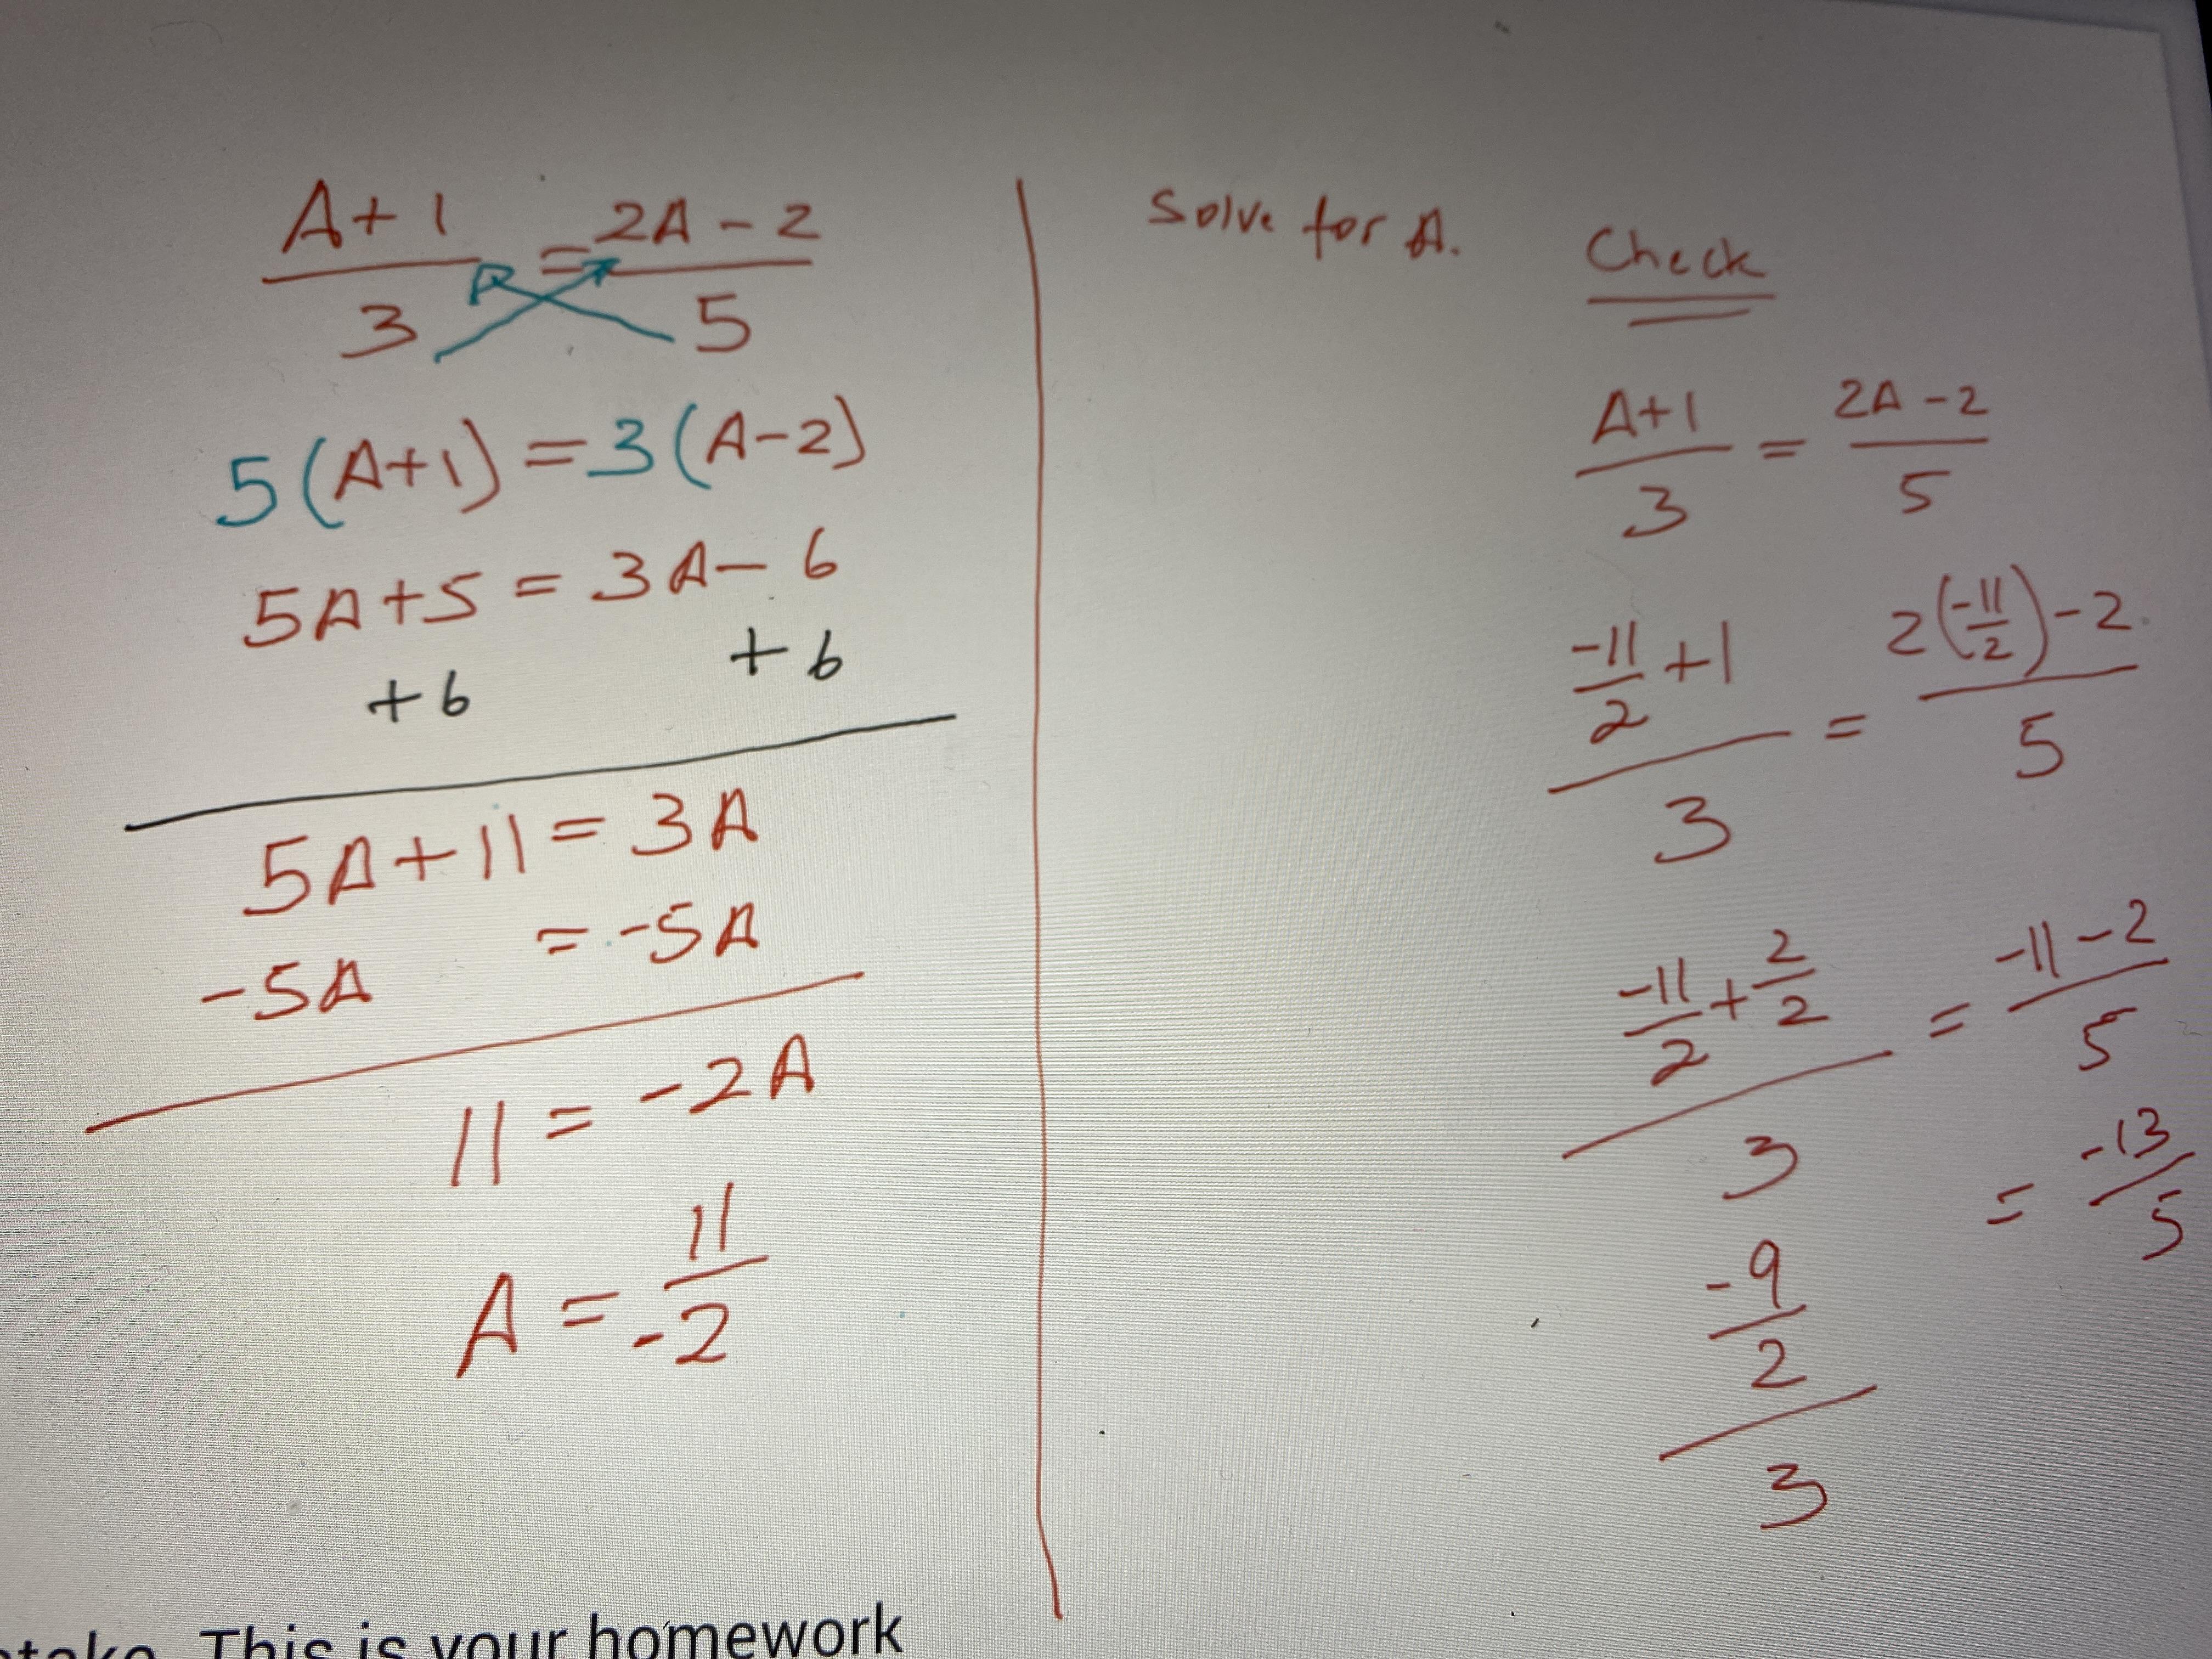 A+1/3 = 2A-2/5
5(A+1) = 3(A-2)
5A+5 = 3A-6
+6 +6
5A+11 = 3A
-5A = -5A
11 = -2A
A = 11/-2
Solve for A.
Check
A+1/3 = 2A-2/5
-11/2 +1/3 = 2(-11/2)-2/5
-11/2 + 2/2/3 = -11-2/5
= -13/5
-9/2/3
This is your homework